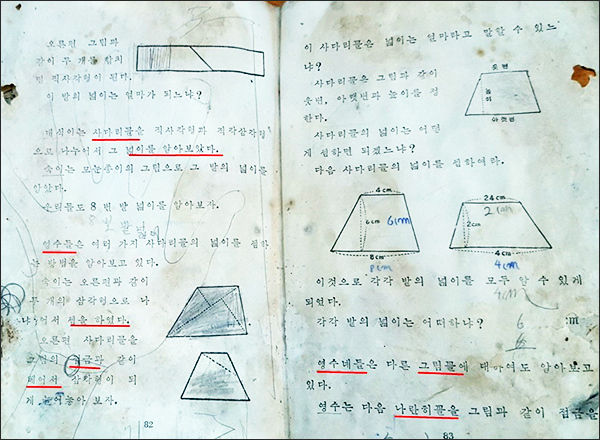 오른편 그림과
같이 두 개를 합치
면 직사각형이 된다.
이 밭의 넓이는 얼마가 되느냐?
대식이는 사다리꼴을 직사각형과 직각삼각형
으로 나누어서 그 넓이를 알아보았다.
속이는 모눈종이의 그림으로 그 밭의 넓이를
알았다.
우리들도 8 번 밭 넓이를 알아보자.
영수들은 여러 가지 사다리꼴의 넓이를 셈하
는 방법을 알아보고 있다.
속이는 오른편과 같이
두 개의 삼각형으로 나
누어서 셈을 하였다.
오른편 사다리꼴을
그림의 점금과 같이
떼어서 삼각형이 되
게 늘어놓아 보자.
82
이 사다리꼴은 넓이는 얼마라고 말할 수 있느
냐?
사다리꼴은 그림과 같이
윗변, 아랫변과 높이를 정
한다.
윗변
높이
아랫변
사다리꼴의 넓이는 어떻
게 셈하면 되겠느냐?
다음 사다리꼴의 넓이를 셈하여라.
4cm
6cm
6cm
8cm
8cm
24cm
2cm
2cm
4cm
4cm
이것으로 각각 밭의 넓이를 모두 알 수 있게
되었다.
4cm
각각 밭의 넓이는 어떠하냐?
6
6
영수네들은 다른 그림꼴에 대하여도 알아보고
있다.
영수는 다음 나란히꼴을 그림과 같이 점금을
83